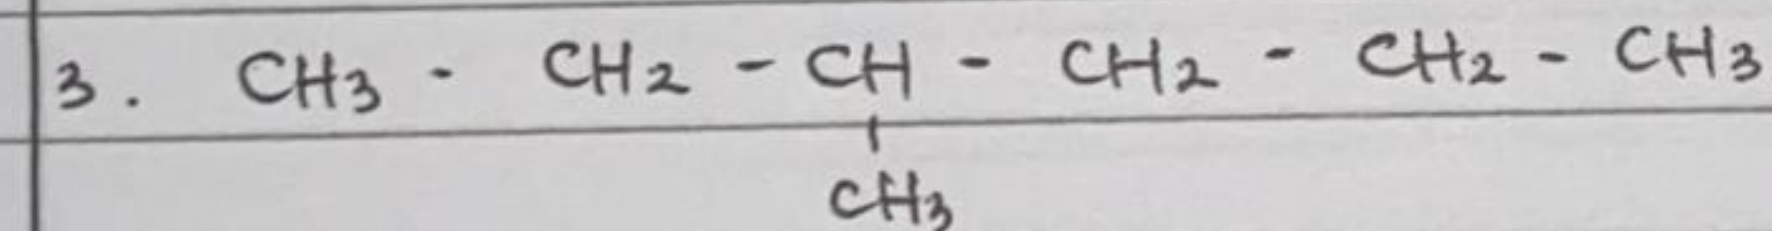 3. CH3 - CH2 - CH - CH2 - CH2 - CH3
|
CH3